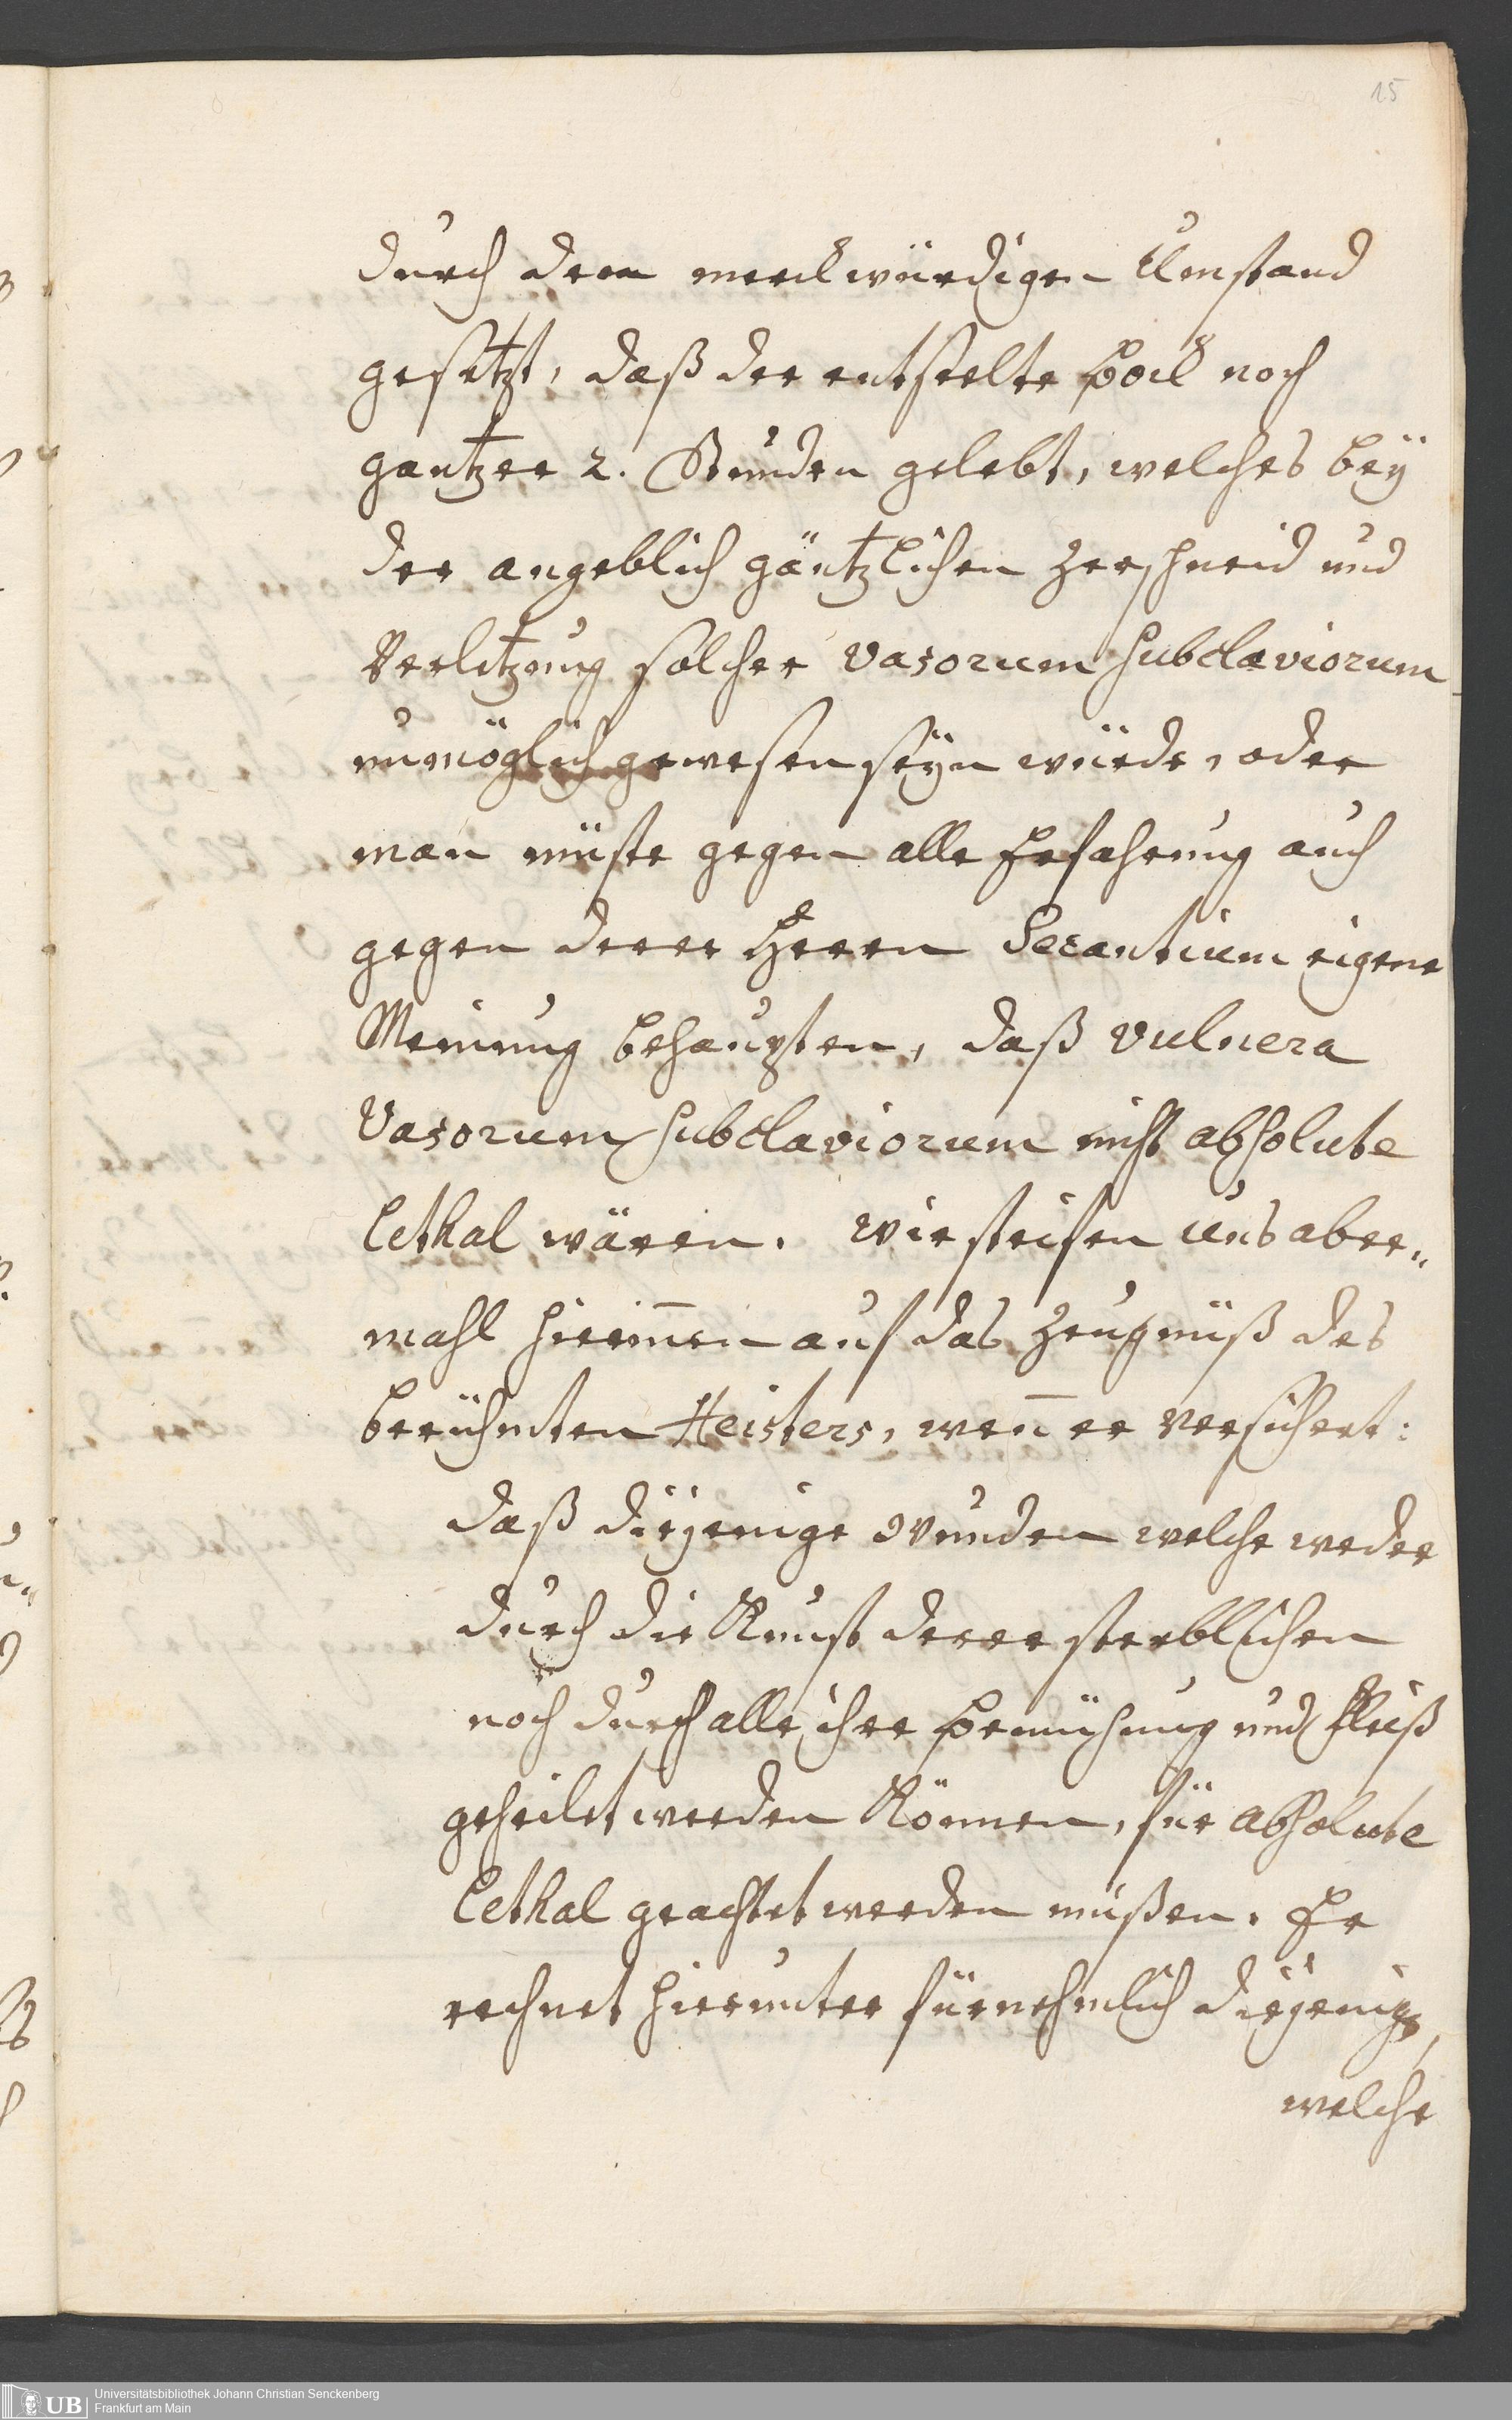 15
durch dem merckwürdigen Umstand
gesetzt, daß der entseelte Böck noch
gantzer 2. Stunden gelebt, welches beÿ
der angeblich gäntzlichen Zerschneid und
Verletzung solcher Vasorum Subclaviorum
unmöglich gewesen seÿn würde, oder
man müste gegen alle Erfahrung auch
gegen derer Herrn Secantium eigene
Meinung behaupten, daß Vulnera
Vasorum Subclaviorum nicht absolute
lethal wären. Wir steifen uns aber„
mahl hierin̄en auf das Zeugnüß des
berühmten Heisters, wen̄ er versichert:
daß diejenige Wunden welche weder
durch die Kunst derer sterblichen
noch durch alle ihre Bemühung und Fleiß
geheilet werden Können, für absolute
lethal geachtet werden müßen. Er
rechnet hierunter fürnehmlich diejenige,
welche
UB
Universitätsbibliothek Johann Christian Senckenberg
Frankfurt am Main